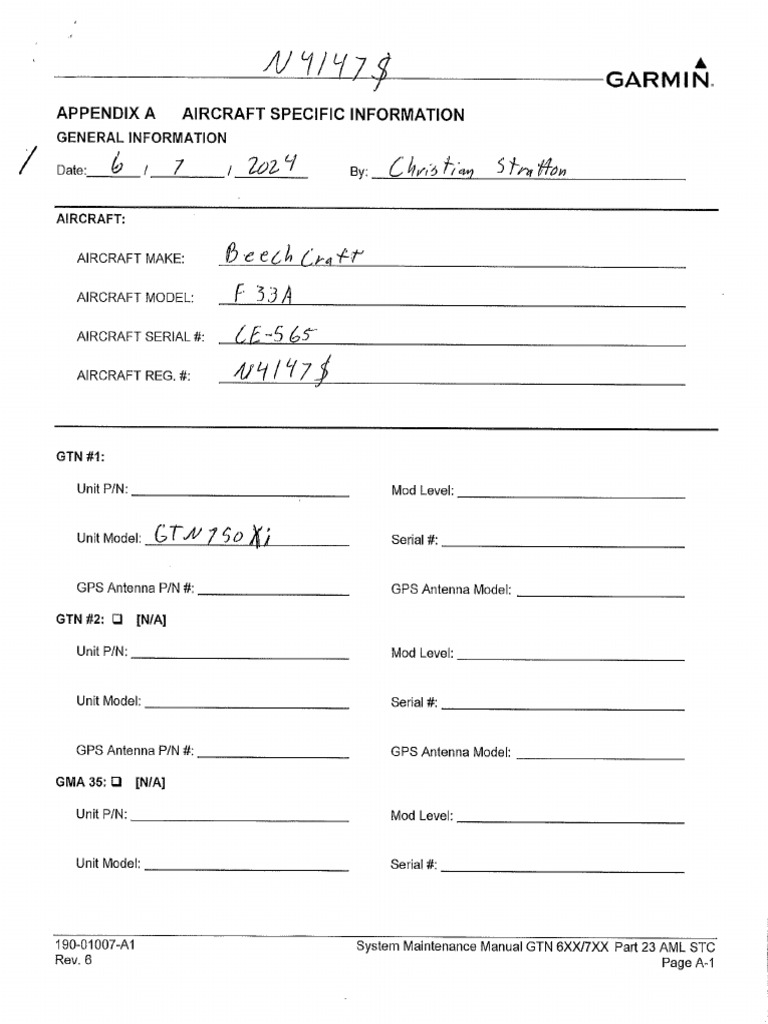 N4147S
GARMIN
APPENDIX A AIRCRAFT SPECIFIC INFORMATION
GENERAL INFORMATION
Date: 6 / 7 / 2024 By: Christian Stratton
AIRCRAFT:
AIRCRAFT MAKE: BeechCraft
AIRCRAFT MODEL: F 33A
AIRCRAFT SERIAL #: CE-565
AIRCRAFT REG. #: N4147S
GTN #1:
Unit P/N: Mod Level:
Unit Model: GTN750Xi Serial #:
GPS Antenna P/N #: GPS Antenna Model:
GTN #2: ❑ [N/A]
Unit P/N: Mod Level:
Unit Model: Serial #:
GPS Antenna P/N #: GPS Antenna Model:
GMA 35: ❑ [N/A]
Unit P/N: Mod Level:
Unit Model: Serial #:
190-01007-A1 System Maintenance Manual GTN 6XX/7XX Part 23 AML STC
Rev. 6 Page A-1